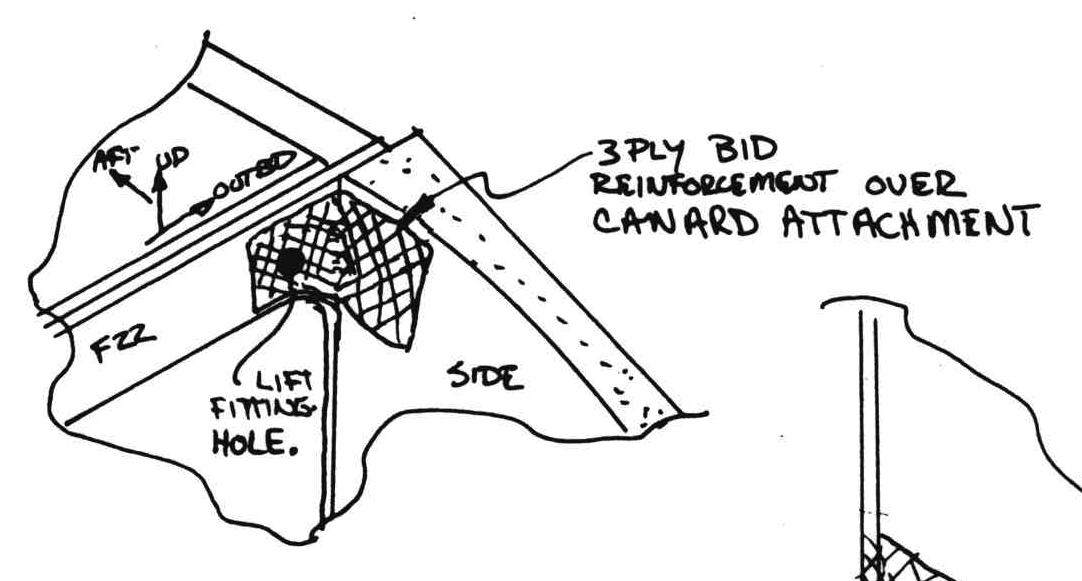 AFT
UP
OUTBD
3 PLY BID
REINFORCEMENT OVER
CANARD ATTACHMENT
F22
SIDE
LIFT
FITTING
HOLE.